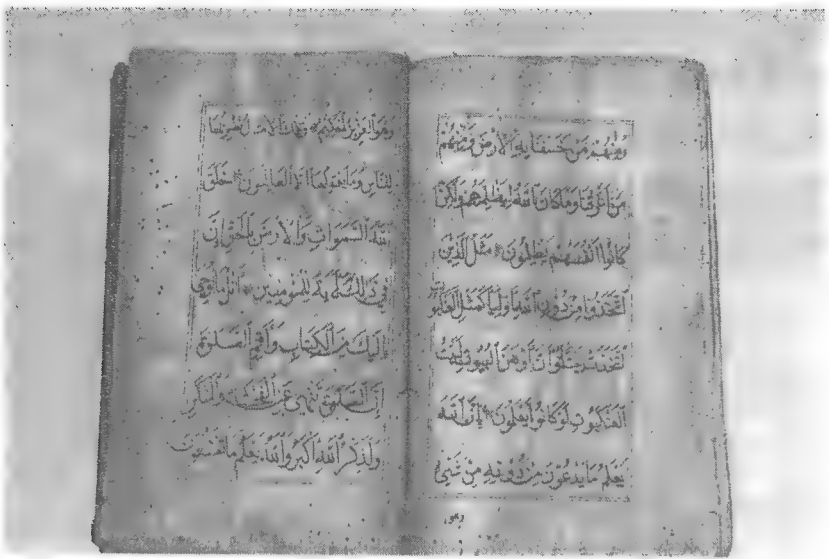 ومنهم من خسفنا به الارض ومنهم
من اغرقنا وما كان الله ليظلمهم ولكن
كانوا انفسهم يظلمون مثل الذين
اتخذوا من دون الله اولياء كمثل العنكبوت
اتخذت بيتا وان اوهن البيوت لبيت
العنكبوت لو كانوا يعلمون ان الله
يعلم ما يدعون من دونه من شيء
وهو
وهو العزيز الحكيم وتلك الامثال نضربها
للناس وما يعقلها الا العالمون خلق
الله السموات والارض بالحق ان
في ذلك لاية للمؤمنين اتل ما اوحي
اليك من الكتاب واقم الصلوة
ان الصلوة تنهى عن الفحشاء والمنكر
ولذكر الله اكبر والله يعلم ما تصنعون